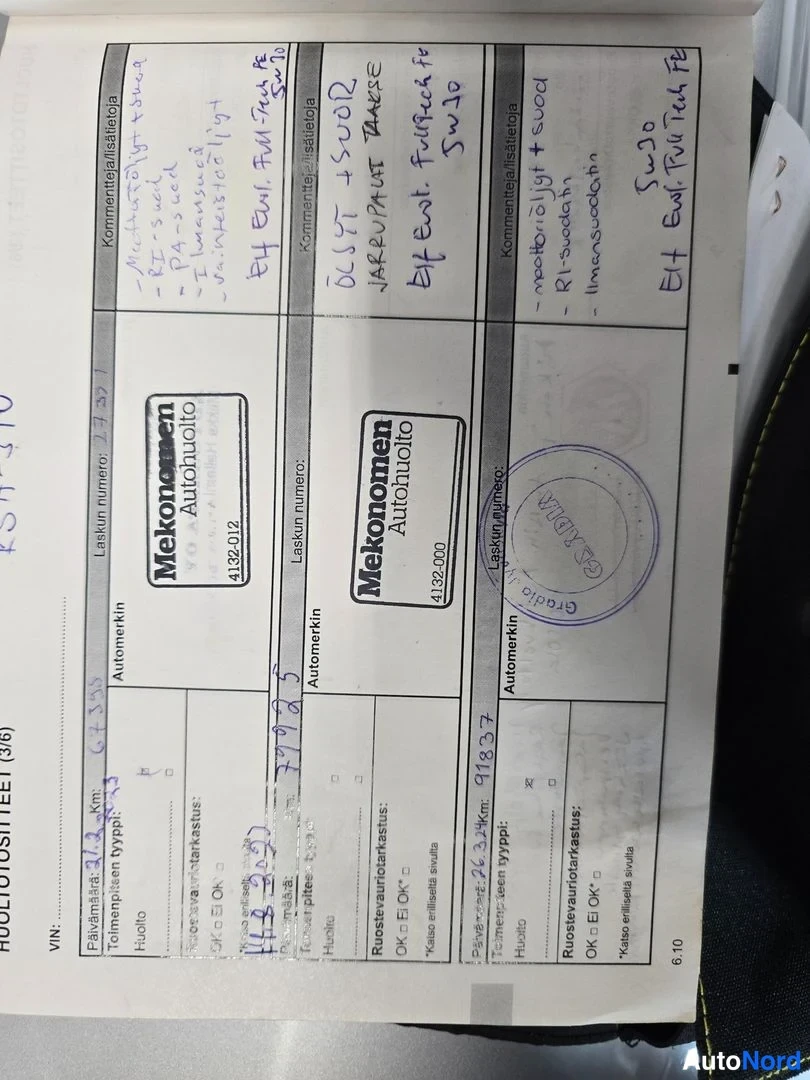 HUOLTOTOSITTEET (3/6)
VIN:
Päivämäärä: 21.2.2023 Km: 67395 Laskun numero: Kommentteja/lisätietoja
Toimenpiteen tyyppi: Automerkin
Huolto
Ruostevauriotarkastus:
OK □ Ei OK* □
*Katso erilliseltä sivulta
Mekonomen
Autohuolto
4132-012
- Moottoriöljyt + suod
- RI-suod
- PA-suod
- Ilmansuod
- vaihteistoöljyt
Elf Evol. Full-Tech FE
5w30
Päivämäärä: Km: 79925 Laskun numero: Kommentteja/lisätietoja
Toimenpiteen tyyppi: Automerkin
Huolto
Ruostevauriotarkastus:
OK □ Ei OK* □
*Katso erilliseltä sivulta
Mekonomen
Autohuolto
4132-000
ÖLJYT + SUOD
JARRUPALAT TAAKSE
Elf Evol. FullTech FE
5w30
Päivämäärä: 26.3.24 Km: 91837 Laskun numero: Kommentteja/lisätietoja
Toimenpiteen tyyppi: Automerkin
Huolto
Ruostevauriotarkastus:
OK □ Ei OK* □
*Katso erilliseltä sivulta
Gradia
GRADIA
- moottoriöljyt + suod
- RI-suodatin
- Ilmansuodatin
5w30
Elf Evol. Full Tech FE
6.10
AutoNord